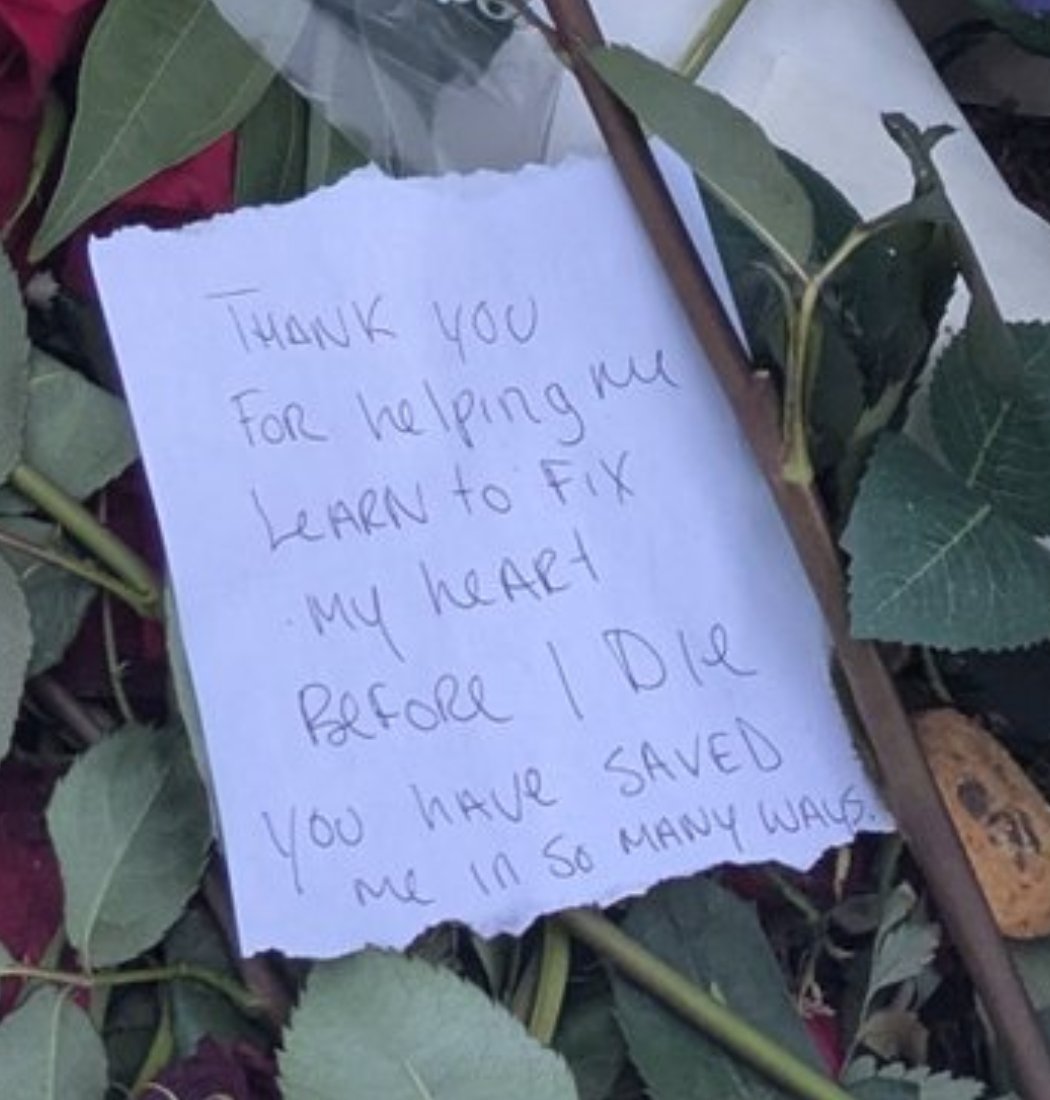 THANK YOU
FOR helping me
LeARN to FIX
MY heARt
BeFORe I DIe
YOU hAVe SAVED
me in So MANY WAYS.